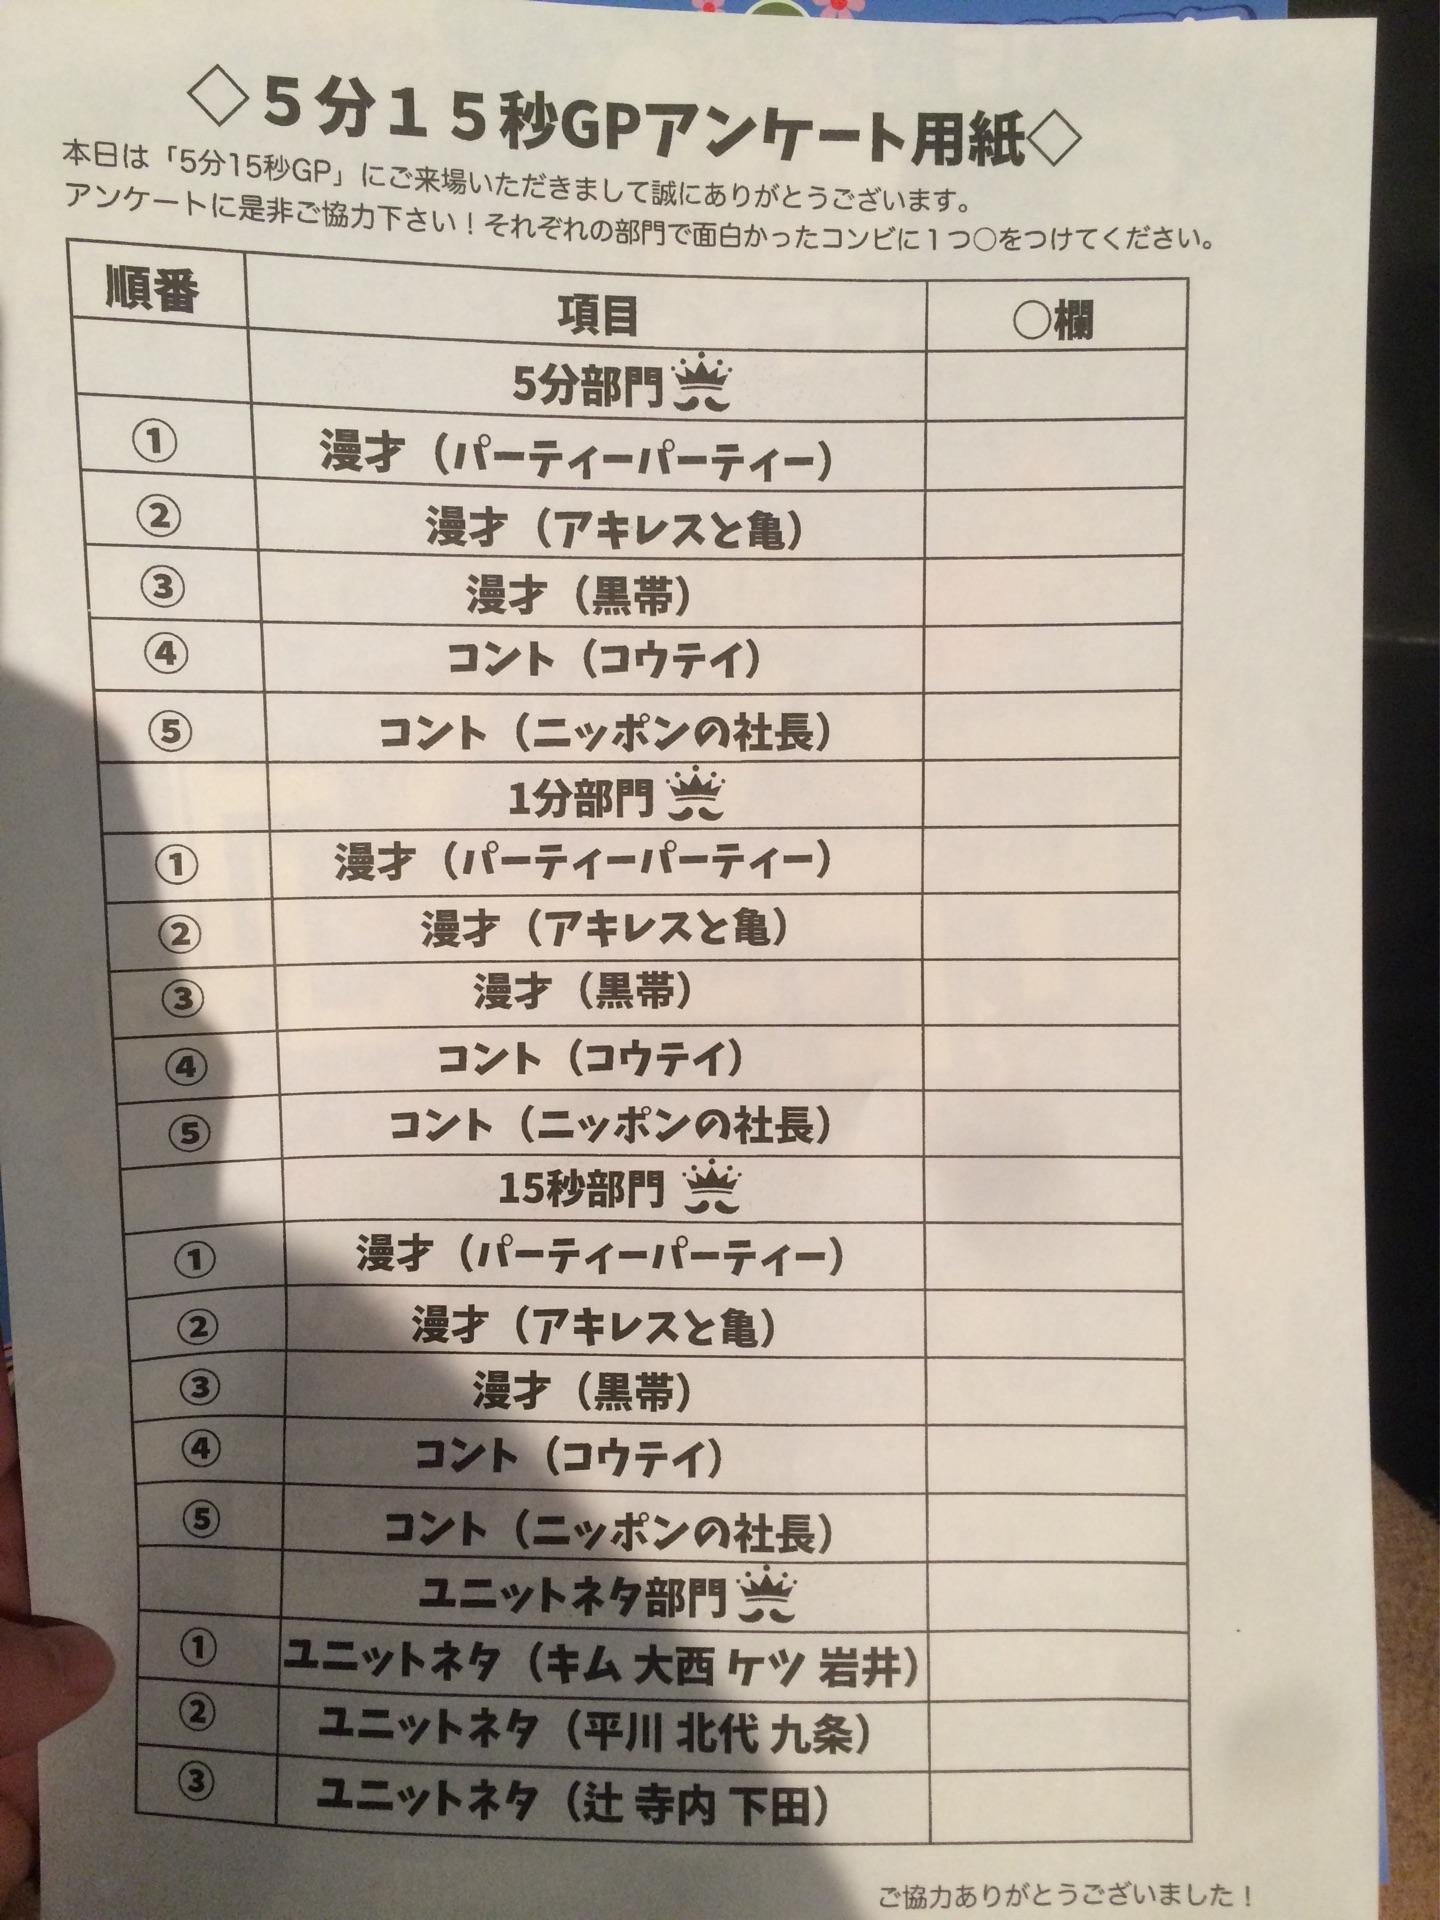 ◇５分１５秒GPアンケート用紙◇
本日は「5分15秒GP」にご来場いただきまして誠にありがとうございます。
アンケートに是非ご協力下さい！それぞれの部門で面白かったコンビに１つ○をつけてください。
順番 項目 ○欄
5分部門
① 漫才（パーティーパーティー）
② 漫才（アキレスと亀）
③ 漫才（黒帯）
④ コント（コウテイ）
⑤ コント（ニッポンの社長）
1分部門
① 漫才（パーティーパーティー）
② 漫才（アキレスと亀）
③ 漫才（黒帯）
④ コント（コウテイ）
⑤ コント（ニッポンの社長）
15秒部門
① 漫才（パーティーパーティー）
② 漫才（アキレスと亀）
③ 漫才（黒帯）
④ コント（コウテイ）
⑤ コント（ニッポンの社長）
ユニットネタ部門
① ユニットネタ（キム 大西 ケツ 岩井）
② ユニットネタ（平川 北代 九条）
③ ユニットネタ（辻 寺内 下田）
ご協力ありがとうございました！